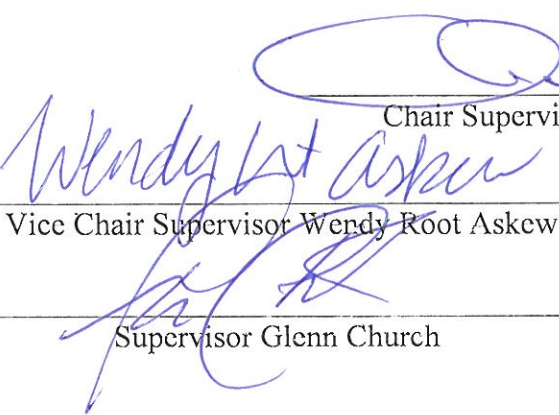 Chair Supervi
Wendy Askew
Vice Chair Supervisor Wendy Root Askew
Supervisor Glenn Church